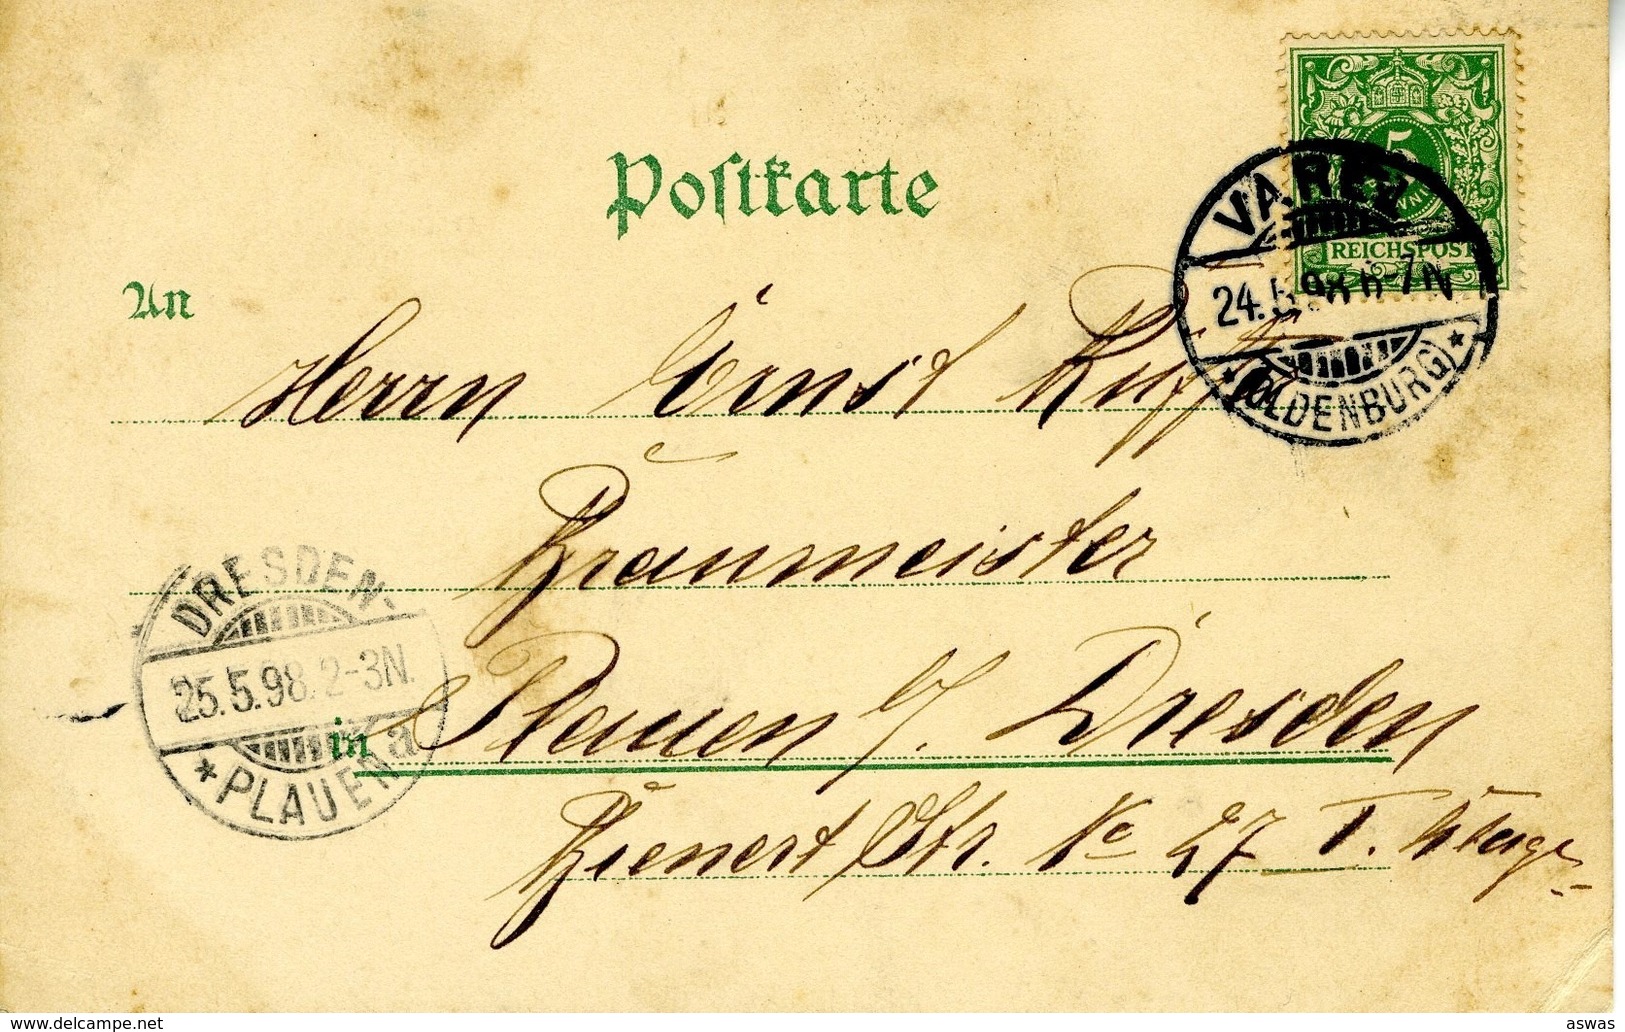 Postkarte
5
REICHSPOST
VAREL
24.5.98 6-7N
*(OLDENBURG)*
An
Herrn Ernst
Braumeister
DRESDEN-
25.5.98. 2-3N.
* PLAUEN a
in Plauen b/. Dresden
Bienert Str. No 27 I. Etage
delcampe.net
aswas